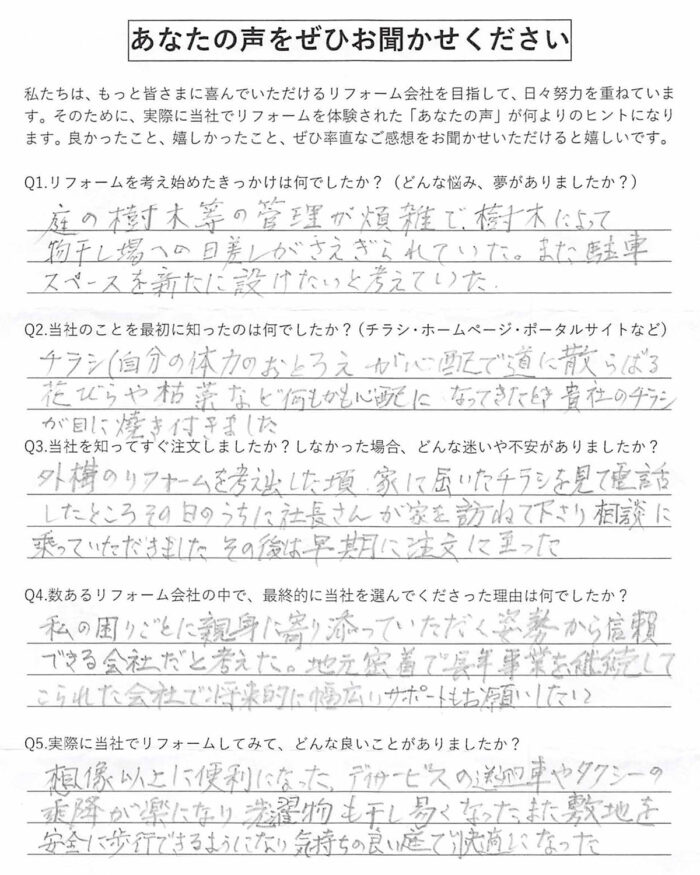 あなたの声をぜひお聞かせください
私たちは、もっと皆さまに喜んでいただけるリフォーム会社を目指して、日々努力を重ねていま
す。そのために、実際に当社でリフォームを体験された「あなたの声」が何よりのヒントになり
ます。良かったこと、嬉しかったこと、ぜひ率直なご感想をお聞かせいただけると嬉しいです。
Q1.リフォームを考え始めたきっかけは何でしたか?（どんな悩み、夢がありましたか？）
庭の樹木等の管理が煩雑で、樹木によって
物干し場への日差しがさえぎられていた。また駐車
スペースを新たに設けたいと考えていた.
Q2.当社のことを最初に知ったのは何でしたか?（チラシ・ホームページ・ポータルサイトなど）
チラシ(自分の体力のおとろえが心配で道に散らばる
花びらや枯葉など何もかも心配になってきたとき貴社のチラシ
が目に焼き付きました
Q3.当社を知ってすぐ注文しましたか？しなかった場合、どんな迷いや不安がありましたか？
外構のリフォームを考え出した頃、家に届いたチラシを見て電話
したところその日のうちに社長さんが家を訪ねて下さり相談に
乗っていただきました その後は早期に注文に至った
Q4.数あるリフォーム会社の中で、最終的に当社を選んでくださった理由は何でしたか？
私の困りごとに親身に寄り添っていただく姿勢から信頼
できる会社だと考えた。地元密着で長年事業を継続して
こられた会社で将来的に幅広いサポートもお願いしたい
Q5.実際に当社でリフォームしてみて、どんな良いことがありましたか？
想像以上に便利になった、デイサービスの送迎車やタクシーの
乗降が楽になり洗濯物も干し易くなった、また敷地を
安全に歩行できるようになり気持ちの良い庭で快適になった